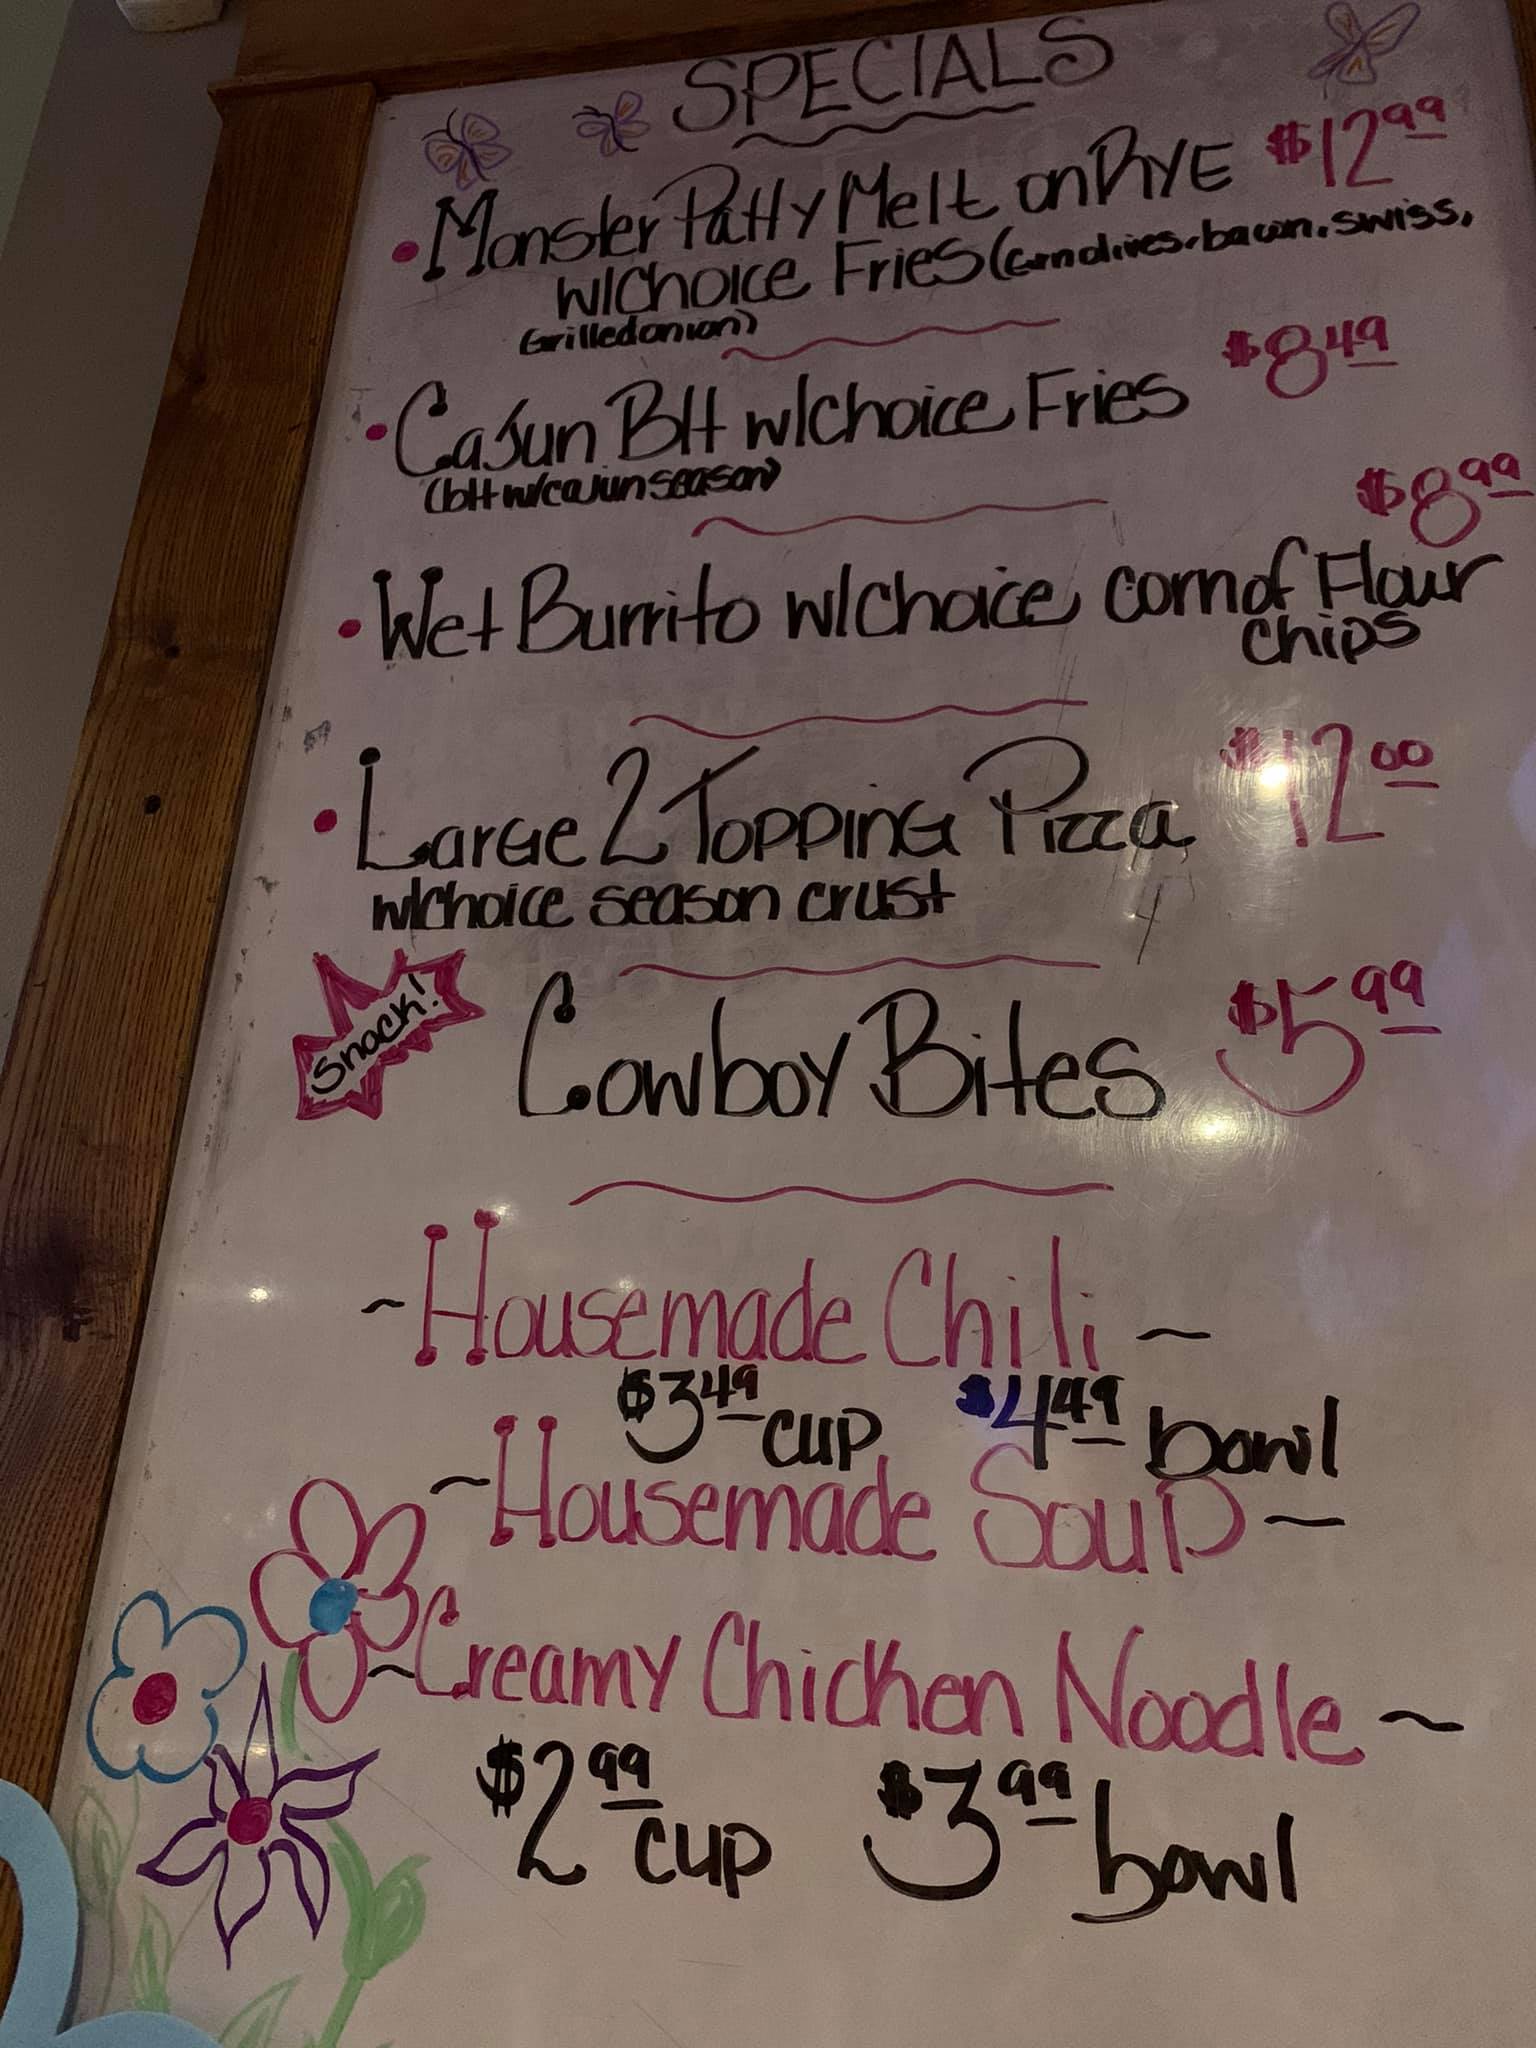 SPECIALS
• Monster Patty Melt on RYE $12.99
w/choice Fries (corn olives, bacon, swiss,
Grilled onion)
• Cajun Blt w/choice Fries $8.49
(blt w/cajun season)
$8.99
• Wet Burrito w/choice corn of Flour
chips
• Large 2 Topping Pizza $12.00
w/choice season crust
Snack!
Cowboy Bites $5.99
~Housemade Chili~
$3.49 cup $4.49 bowl
~Housemade Soup~
~Creamy Chicken Noodle~
$2.99 cup $3.99 bowl